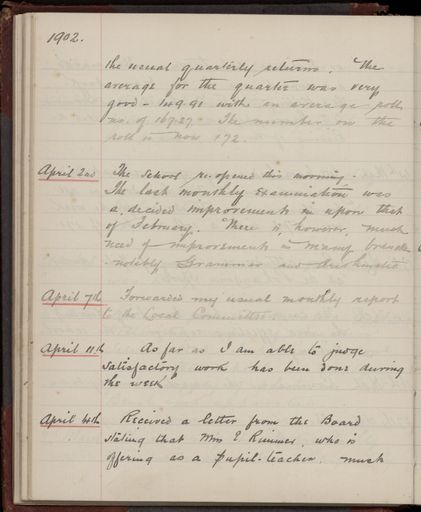 1902.
the usual quarterly returns. The
average for the quarter was very
good - 149.91 with an average roll
no. of 167.27. The number on the
roll is now 172.
April 2nd The School re-opened this morning.
The last monthly examination was
a decided improvement in upon that
of February. There is, however, much
need of improvement in many branches
notably Grammar and Arithmetic
April 7th Forwarded my usual monthly report
to the Local Committee.
April 11th As far as I am able to judge
satisfactory work has been done during
the week
April Received a letter from the Board
stating that Miss E Rimmer, who is
offering as a Pupil-teacher. must